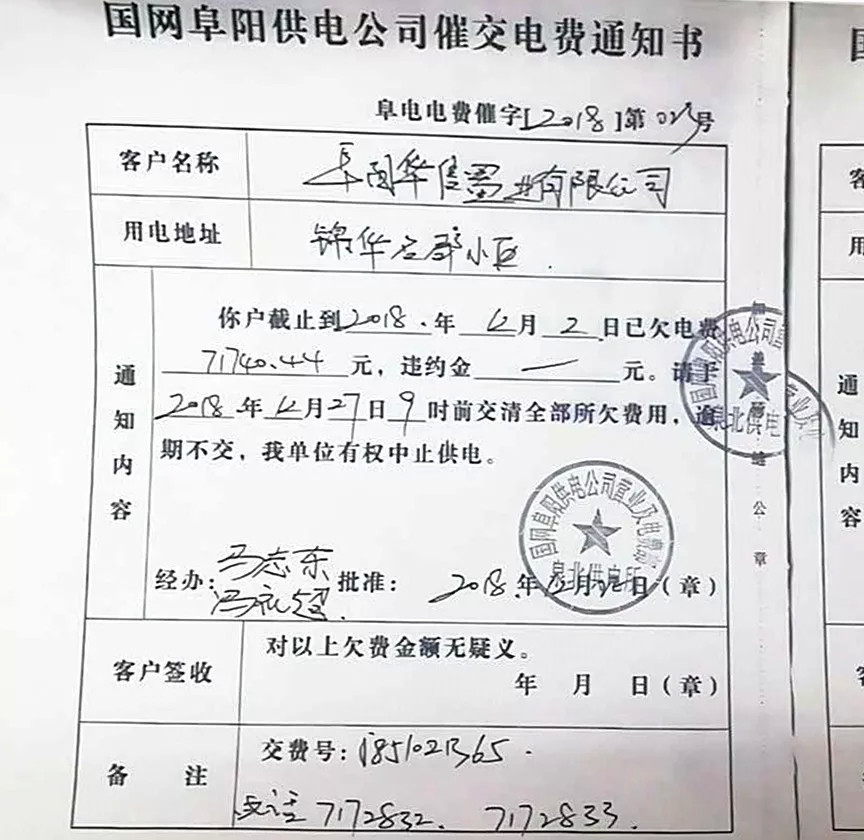 国网阜阳供电公司催交电费通知书
阜电电费催字[2018]第 号
客户名称 阜阳华信置业有限公司
用电地址 锦华名邸小区.
通知内容
你户截止到2018.年12月2日已欠电费
71740.44元，违约金 — 元。请于
2018年12月27日9时前交清全部所欠费用，逾
期不交，我单位有权中止供电。
经办：马志东 批准： 2018.年12月 日（章）
冯
国网阜阳供电公司营业及电费
阜北供电所
国网阜阳供电公司营
北供电
加盖骑缝公章
客户签收
对以上欠费金额无疑义。
年 月 日（章）
备注
交费号：1851021365.
电话 7172832. 7172833.
国
客
用
通知内容
客